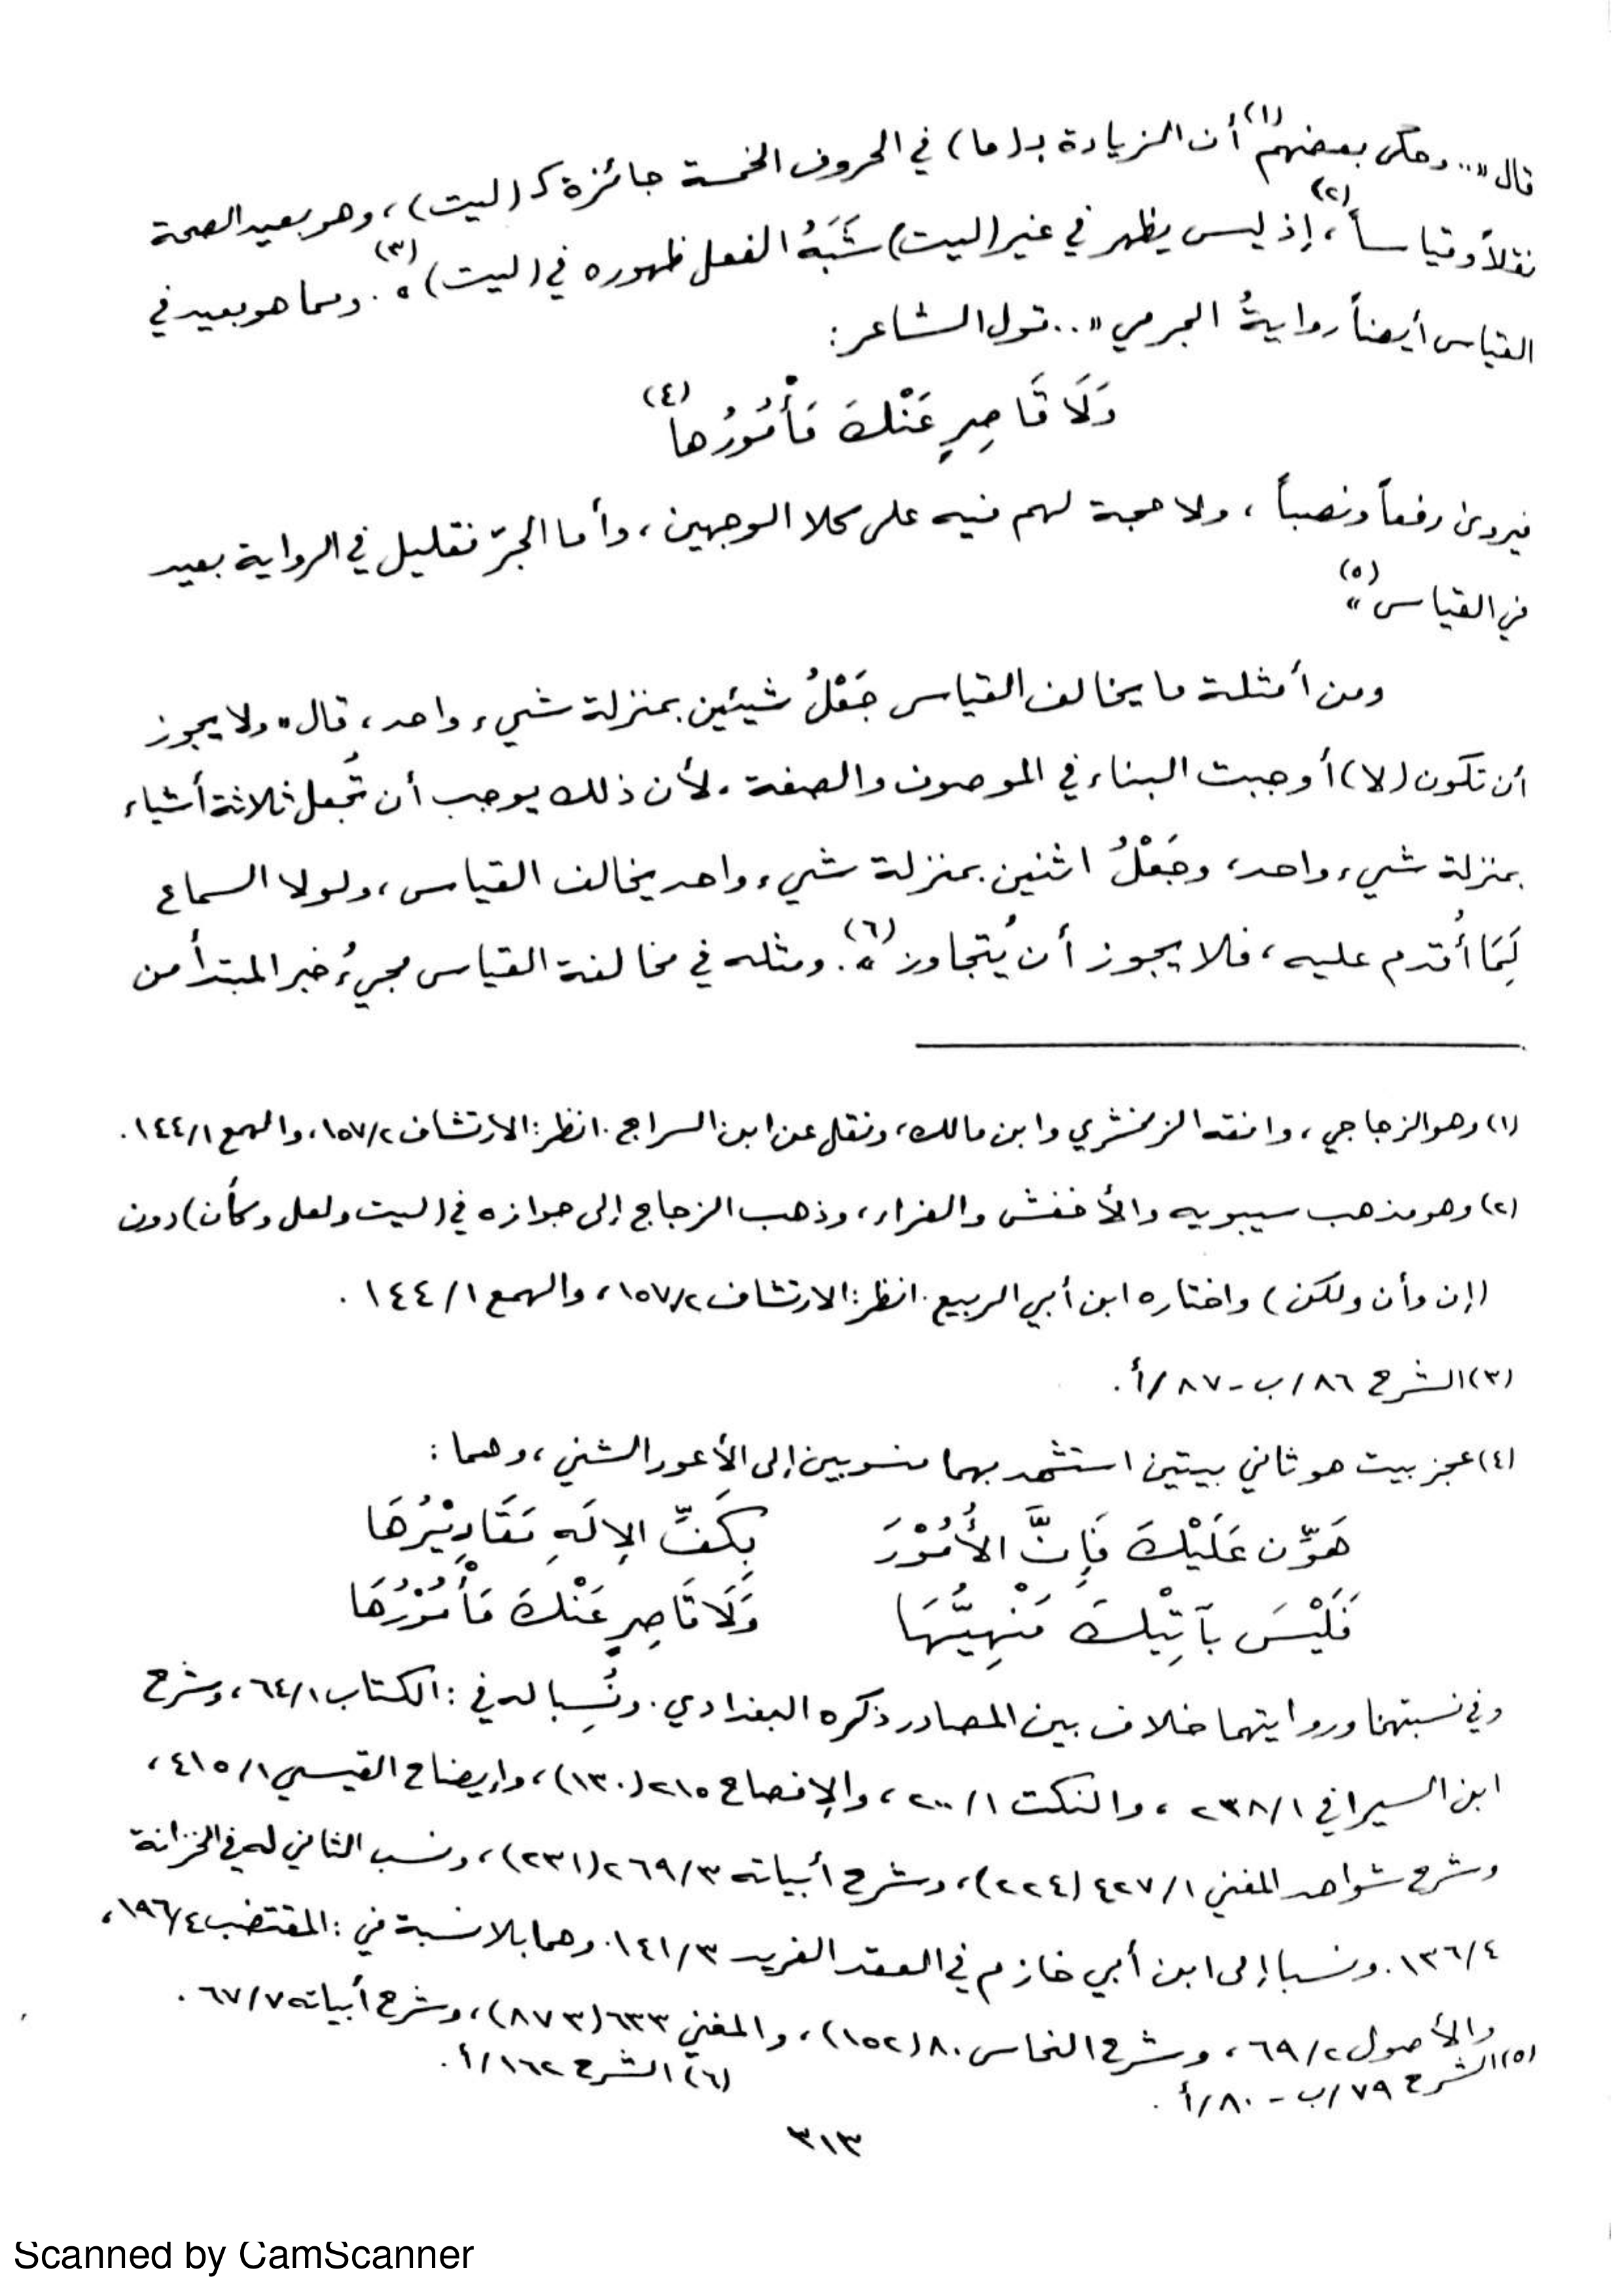 قال «..وحكى بعضهم(١) أن الزيادة بـ(ما) في الحروف الخمسة جائزة كـ(ليت)، وهو بعيد الصحة
نقلاً وقياساً(٢)، إذ ليس يظهر في غير(ليت) شَبَهُ الفعل ظهوره في(ليت)»(٣). ومما هو بعيد في
القياس أيضاً روايةُ الجرمي «..قول الشاعر:
وَلَا قَاصِرٍ عَنْكَ مَأْمُورُها(٤)
فيروى رفعاً ونصباً، ولا حجة لهم فيه على كلا الوجهين، وأما الجرّ فقليل في الرواية بعيد
في القياس»(٥)
ومن أمثلة ما يخالف القياس جَعْلُ شيئين بمنزلة شيء واحد، قال«ولا يجوز
أن تكون(لا) أوجبت البناء في الموصوف والصفة، لأن ذلك يوجب أن تُجعل ثلاثة أشياء
بمنزلة شيء واحد، وجَعْلُ اثنين بمنزلة شيء واحد يخالف القياس، ولولا السماع
لَمَا أُقدم عليه، فلا يجوز أن يُتجاوز»(٦). ومثله في مخالفة القياس مجيءُ خبر المبتدأ من
(١) وهو الزجاجي، وافقه الزمخشري وابن مالك، ونقل عن ابن السراج. انظر: الارتشاف ١٥٧/٢، والهمع ١٤٤/١.
(٢) وهو مذهب سيبويه والأخفش والفراء، وذهب الزجاج إلى جوازه في(ليت ولعل وكأن) دون
(إن وأن ولكن) واختاره ابن أبي الربيع. انظر: الارتشاف ١٥٧/٢، والهمع ١٤٤/١.
(٣) الشرح ٨٦/ب - ٨٧/أ.
(٤) عجز بيت هو ثاني بيتين استشهد بهما منسوبين إلى الأعور الشني، وهما:
هَوِّن عَلَيْكَ فَإِنَّ الأُمُوْرَ بِكَفِّ الإِلَهِ مَقَادِيْرُهَا
فَلَيْسَ بآتِيْكَ مَنْهِيُّهَا وَلَا قَاصِرٍ عَنْكَ مَأْمُوْرُهَا
وفي نسبتهما وروايتهما خلاف بين المصادر ذكره البغدادي. ونُسِبا له في: الكتاب ٦٤/١، وشرح
ابن السيرافي ٢٣٨/١، والنكت ٢٠٠/١، والإفصاح ٢١٥(١٣٠)، وإيضاح القيسي ٤١٥/١،
وشرح شواهد المغني ٤٢٧/١ (٢٢٤)، وشرح أبياته ٢٦٩/٣(٢٣١)، ونسب الثاني له في الخزانة
١٣٦/٤. ونسبا إلى ابن أبي خازم في العقد الفريد ١٤١/٣. وهما بلا نسبة في: المقتضب ١٩٦/٤،
والأصول ٦٩/٢، وشرح النحاس ٨٠(١٥٢)، والمغني ٦٣٣(٨٧٣)، وشرح أبياته ٦٧/٧.
(٥) الشرح ٧٩/ب - ٨٠/أ. (٦) الشرح ١٦٢/أ.
٣١٣
Scanned by CamScanner